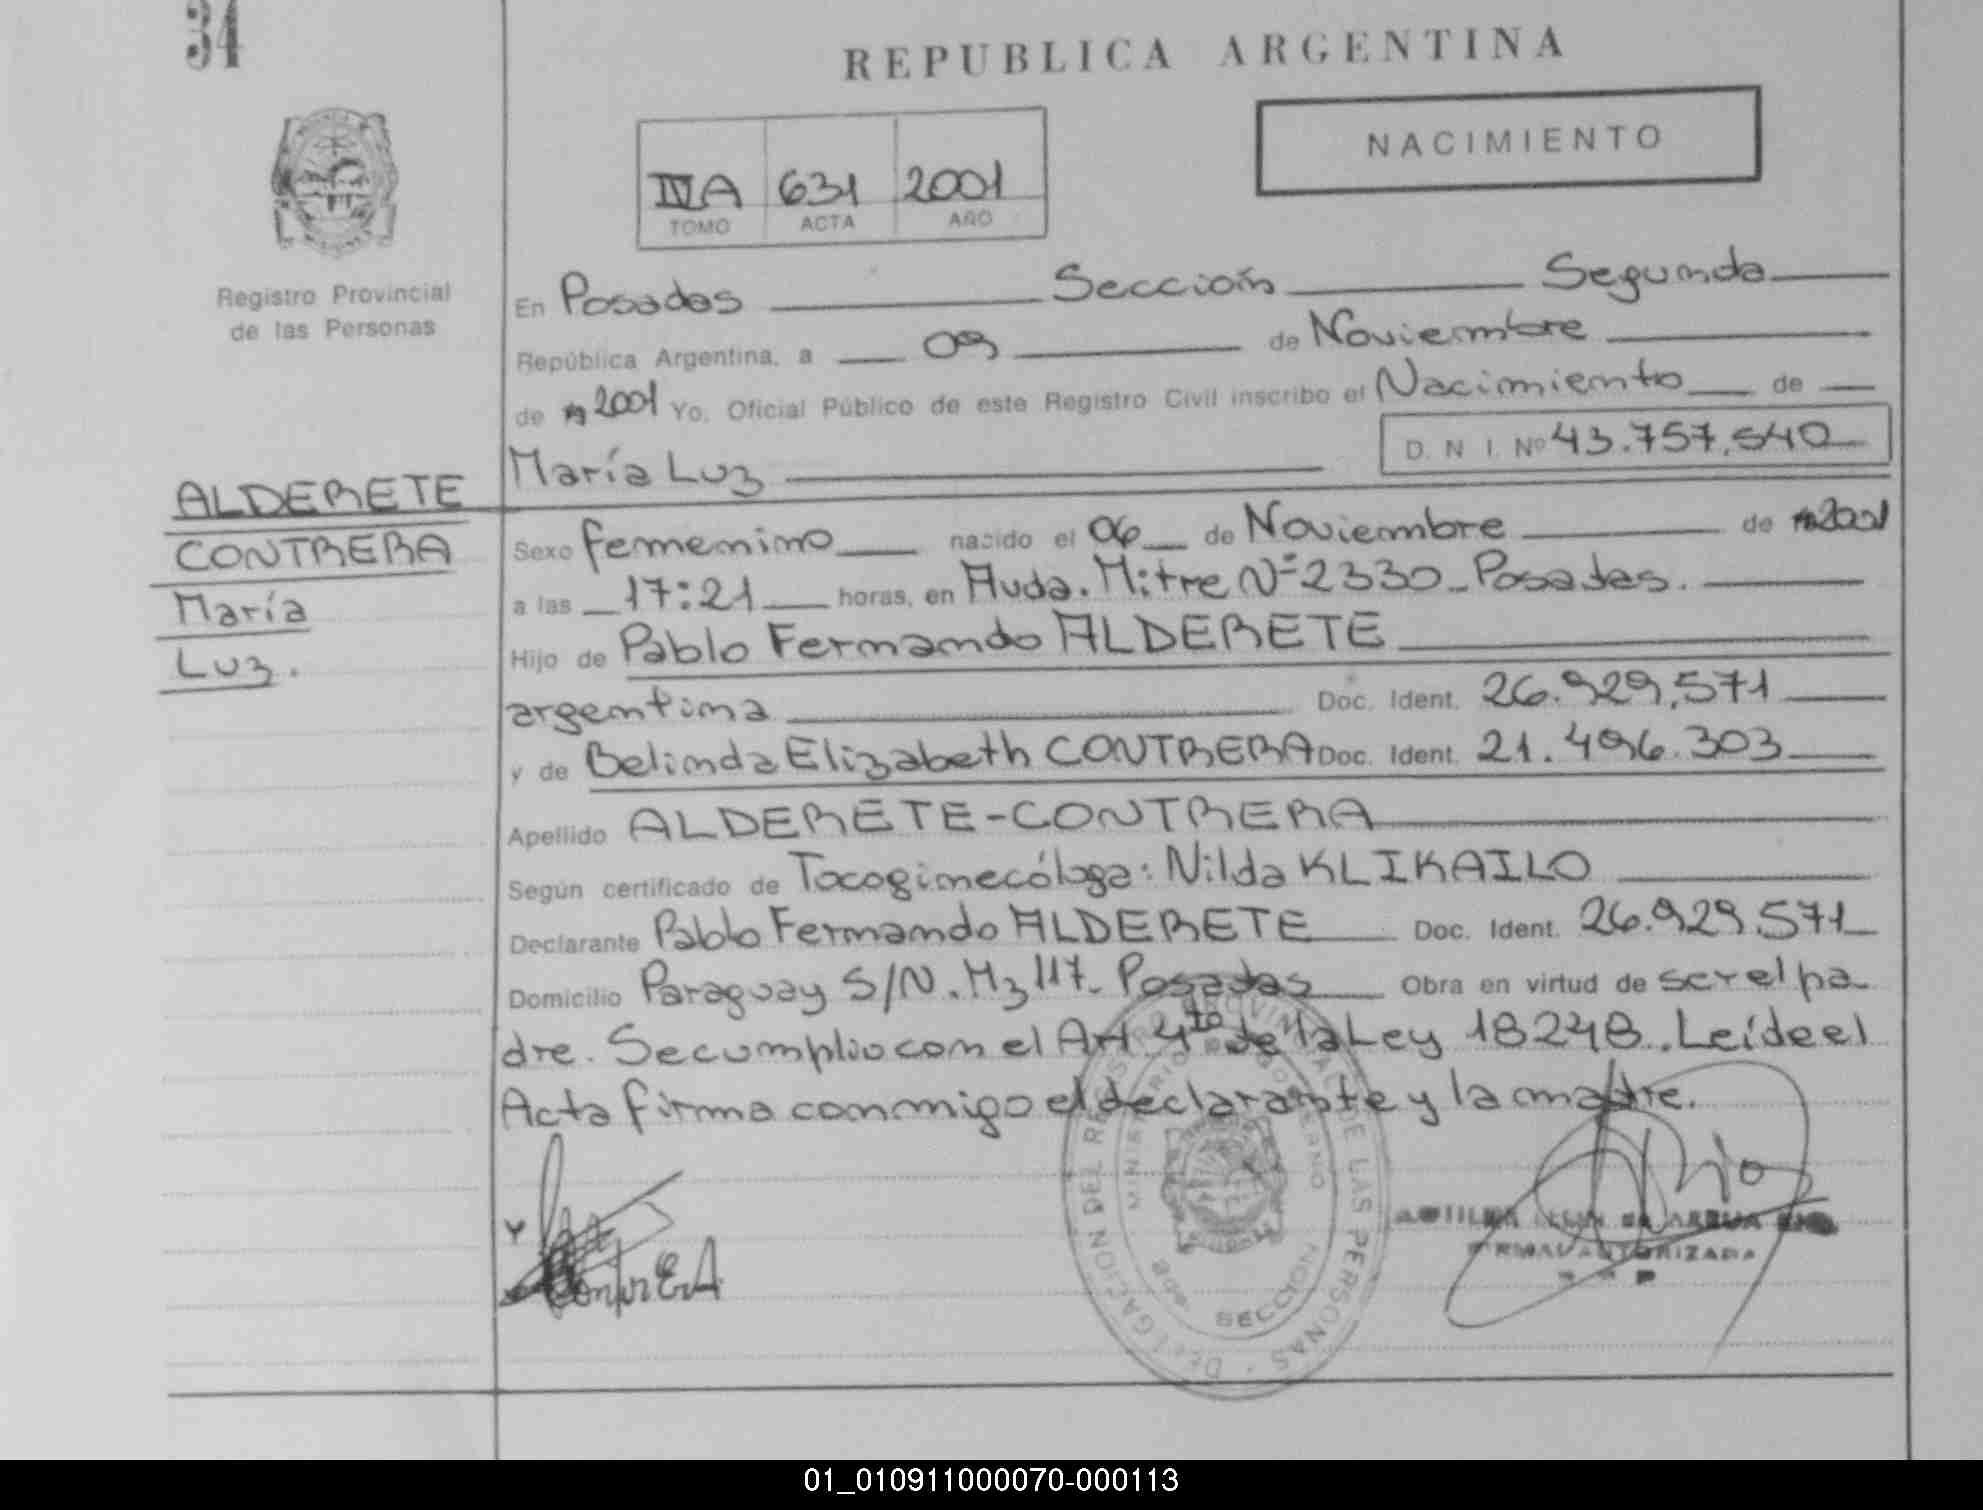 34
REPUBLICA ARGENTINA
NACIMIENTO
IVA 631 2001
TOMO ACTA AÑO
Registro Provincial
de las Personas
En Posadas Sección Segunda
República Argentina, a 09 de Noviembre
de 2001 Yo, Oficial Público de este Registro Civil inscribo el Nacimiento de
D. N. I. Nº 43.757.540
María Luz
ALDERETE
CONTRERA
María
Luz.
Sexo femenino nacido el 06 de Noviembre de 2001
a las 17:21 horas, en Avda. Mitre Nº 2330_Posadas.
Hijo de Pablo Fernando ALDERETE
argentina Doc. Ident. 26.929.571
y de Belinda Elizabeth CONTRERA Doc. Ident. 21.496.303
Apellido ALDERETE-CONTRERA
Según certificado de Tocoginecóloga: Nilda KLIKAILO
Declarante Pablo Fernando ALDERETE Doc. Ident. 26.929.571
Domicilio Paraguay S/N. Mz 117_Posadas Obra en virtud de ser el pa_
dre. Se cumplio con el Art 4to de la Ley 18248. Leíde el
Acta firma conmigo el declarante y la madre.
DELEGACION DEL REGISTRO PROVINCIAL DE LAS PERSONAS
MINISTERIO DE GOBIERNO
SECCION
ContrERA
FIRMA AUTORIZADA
01_010911000070-000113